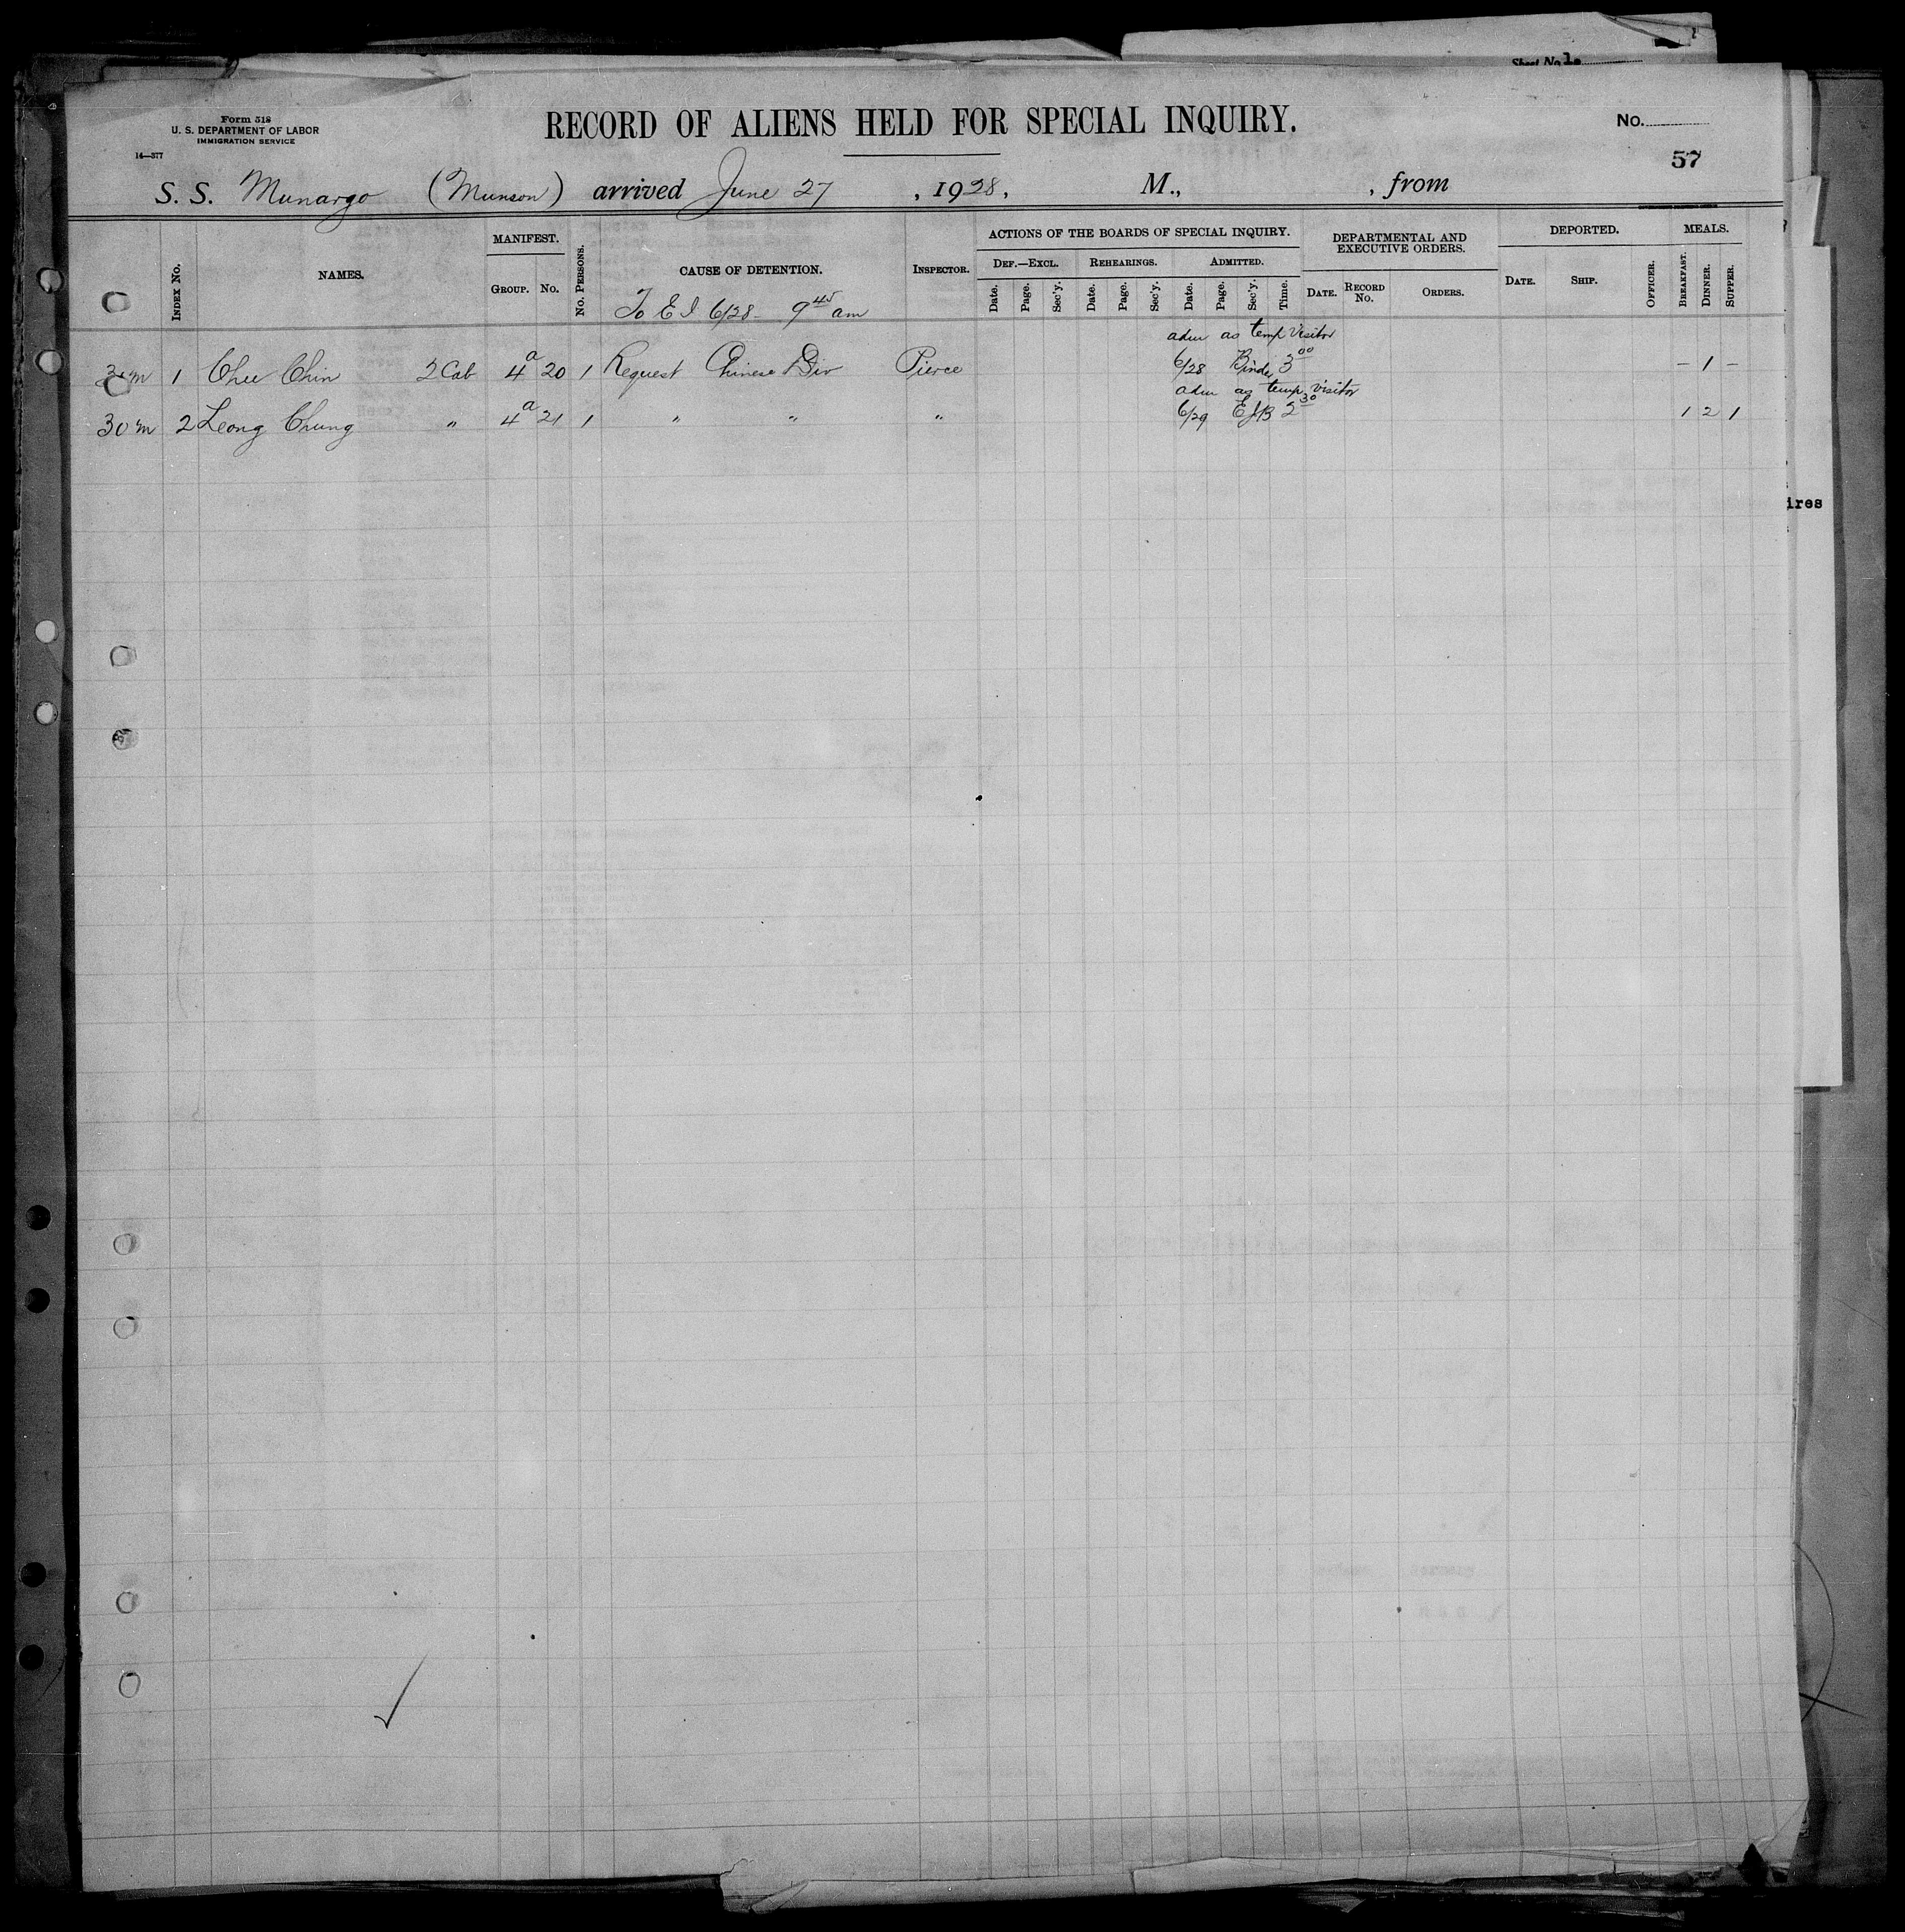 Sheet No. 1.
Form 518
U. S. DEPARTMENT OF LABOR
IMMIGRATION SERVICE
14—377
RECORD OF ALIENS HELD FOR SPECIAL INQUIRY.
No.
57
S. S. Munargo (Munson) arrived June 27, 1928, M., , from
INDEX No.
NAMES.
MANIFEST.
GROUP. No.
No. PERSONS.
CAUSE OF DETENTION.
To E I 6/28 - 9 45 am
INSPECTOR.
ACTIONS OF THE BOARDS OF SPECIAL INQUIRY.
DEF.—EXCL. REHEARINGS. ADMITTED.
Date. Page. Sec'y. Date. Page. Sec'y. Date. Page. Sec'y. Time.
DEPARTMENTAL AND
EXECUTIVE ORDERS.
DATE. RECORD No. ORDERS.
DEPORTED.
DATE. SHIP. OFFICER.
MEALS.
BREAKFAST. DINNER. SUPPER.
adm as temp visitor
30 m 1 Chu Chin 2 Cab 4 a 20 1 Request Chinese Div Pierce 6/28 Binder 3 00 – 1 –
adm as temp visitor
30 m 2 Leong Chung " 4 a 21 1 " " " 6/29 EJB 2 30 1 2 1
ires